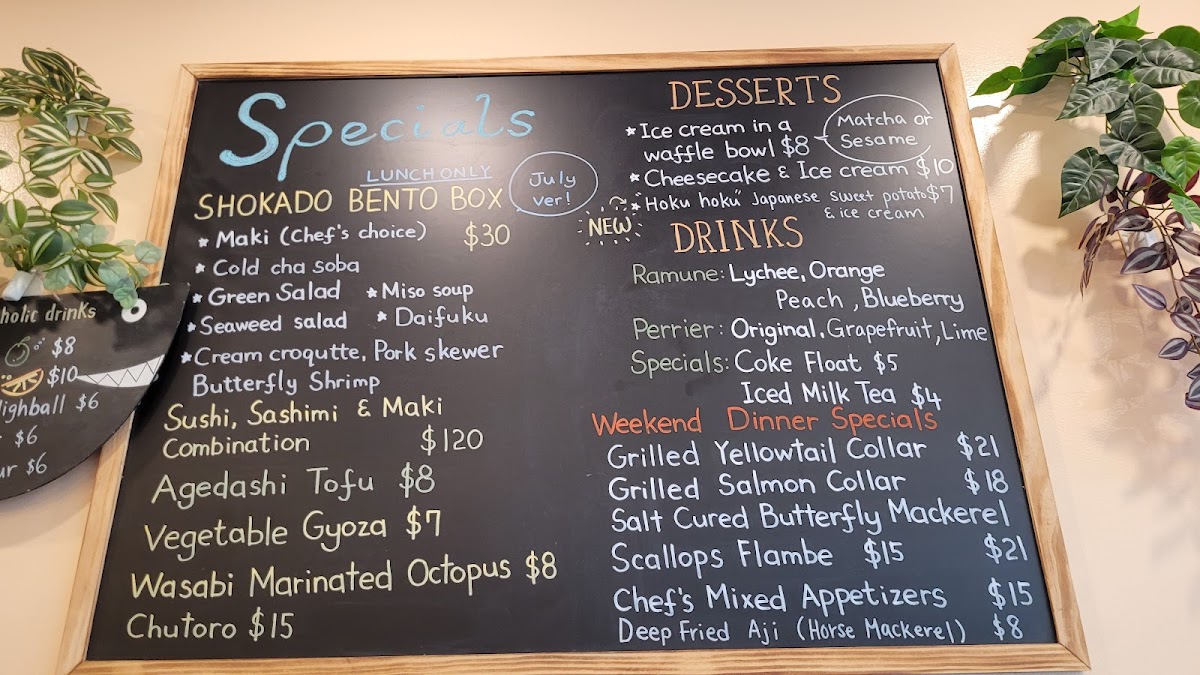 Specials
LUNCH ONLY
SHOKADO BENTO BOX
July
ver!
* Maki (Chef's choice) $30
* Cold cha soba
* Green Salad * Miso soup
* Seaweed salad * Daifuku
* Cream croqutte, Pork skewer
Butterfly Shrimp
Sushi, Sashimi & Maki
Combination $120
Agedashi Tofu $8
Vegetable Gyoza $7
Wasabi Marinated Octopus $8
Chutoro $15
DESSERTS
* Ice cream in a
waffle bowl $8
Matcha or
Sesame
* Cheesecake & Ice cream $10
NEW
* Hoku hoku" Japanese sweet potato $7
& ice cream
DRINKS
Ramune: Lychee, Orange
Peach, Blueberry
Perrier: Original, Grapefruit, Lime
Specials: Coke Float $5
Iced Milk Tea $4
Weekend Dinner Specials
Grilled Yellowtail Collar $21
Grilled Salmon Collar $18
Salt Cured Butterfly Mackerel
$21
Scallops Flambe $15
Chef's Mixed Appetizers $15
Deep Fried Aji (Horse Mackerel) $8
holic drinks
$8
$10
ighball $6
$6
ur $6